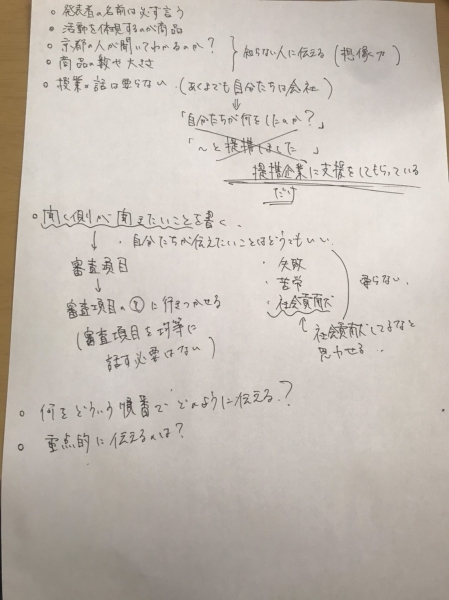 ○ 発表者の名前は必ず言う
○ 活動を体現するのが商品
○ 京都の人が聞いてわかるのか？ 知らない人に伝える（想像力）
○ 商品の数や大きさ
○ 授業の話は要らない（あくまでも自分たちは会社）
「自分たちが何をしたのか？」
「〜と提携しました」
提携企業に支援をしてもらっている
だけ
○ 聞く側が聞きたいことを書く、
・自分たちが伝えたいことはどうでもいい、
審査項目
・失敗
・苦労
・社会貢献
要らない
審査項目の に行きつかせる
（審査項目を均等に
話す必要はない）
社会貢献してるなと
思わせる
○ 何をどういう順番でどのように伝える？
○ 重点的に伝えるのは？